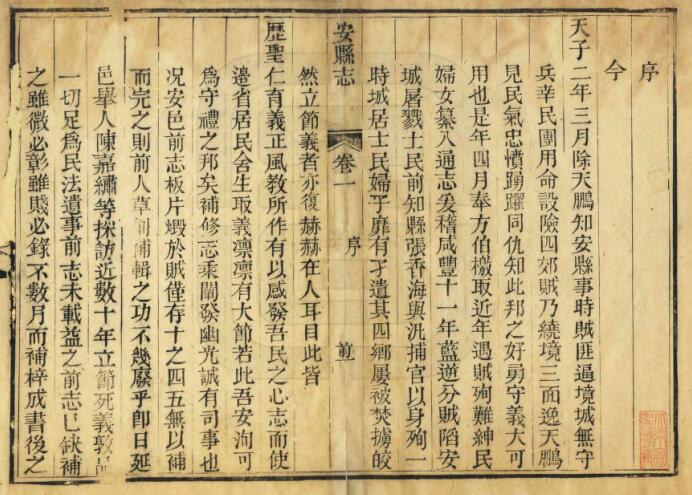 序
今
天子二年三月除天鵬知安縣事時賊匪逼境城無守
兵幸民團用命設險四郊賊乃繞境三面逸天鵬
見民氣忠憤踴躍同仇知此邦之好勇守義大可
用也是年四月奉方伯檄取近年遇賊殉難紳民
婦女纂入通志爰稽咸豐十一年藍逆分賊陷安
城屠戮士民前知縣張香海與汛捕官以身殉一
時城居士民婦子靡有孑遺其四鄉屢被焚擄皎
然立節義者亦復赫赫在人耳目此皆
安縣志 卷一 序 前
歷聖仁育義正風教所作有以感發吾民之心志而使
邊省居民舍生取義凛凛有大節若此吾安洵可
為守禮之邦矣補修志乘闡發幽光誠有司事也
况安邑前志板片燬於賊僅存十之四五無以補
而完之則前人草創輔輯之功不幾廢乎卽日延
邑舉人陳嘉繡等採訪近數十年立節死義敦品
一切足為民法遺事前志未載益之前志已缺補
之雖微必彰雖賤必錄不數月而補梓成書後之